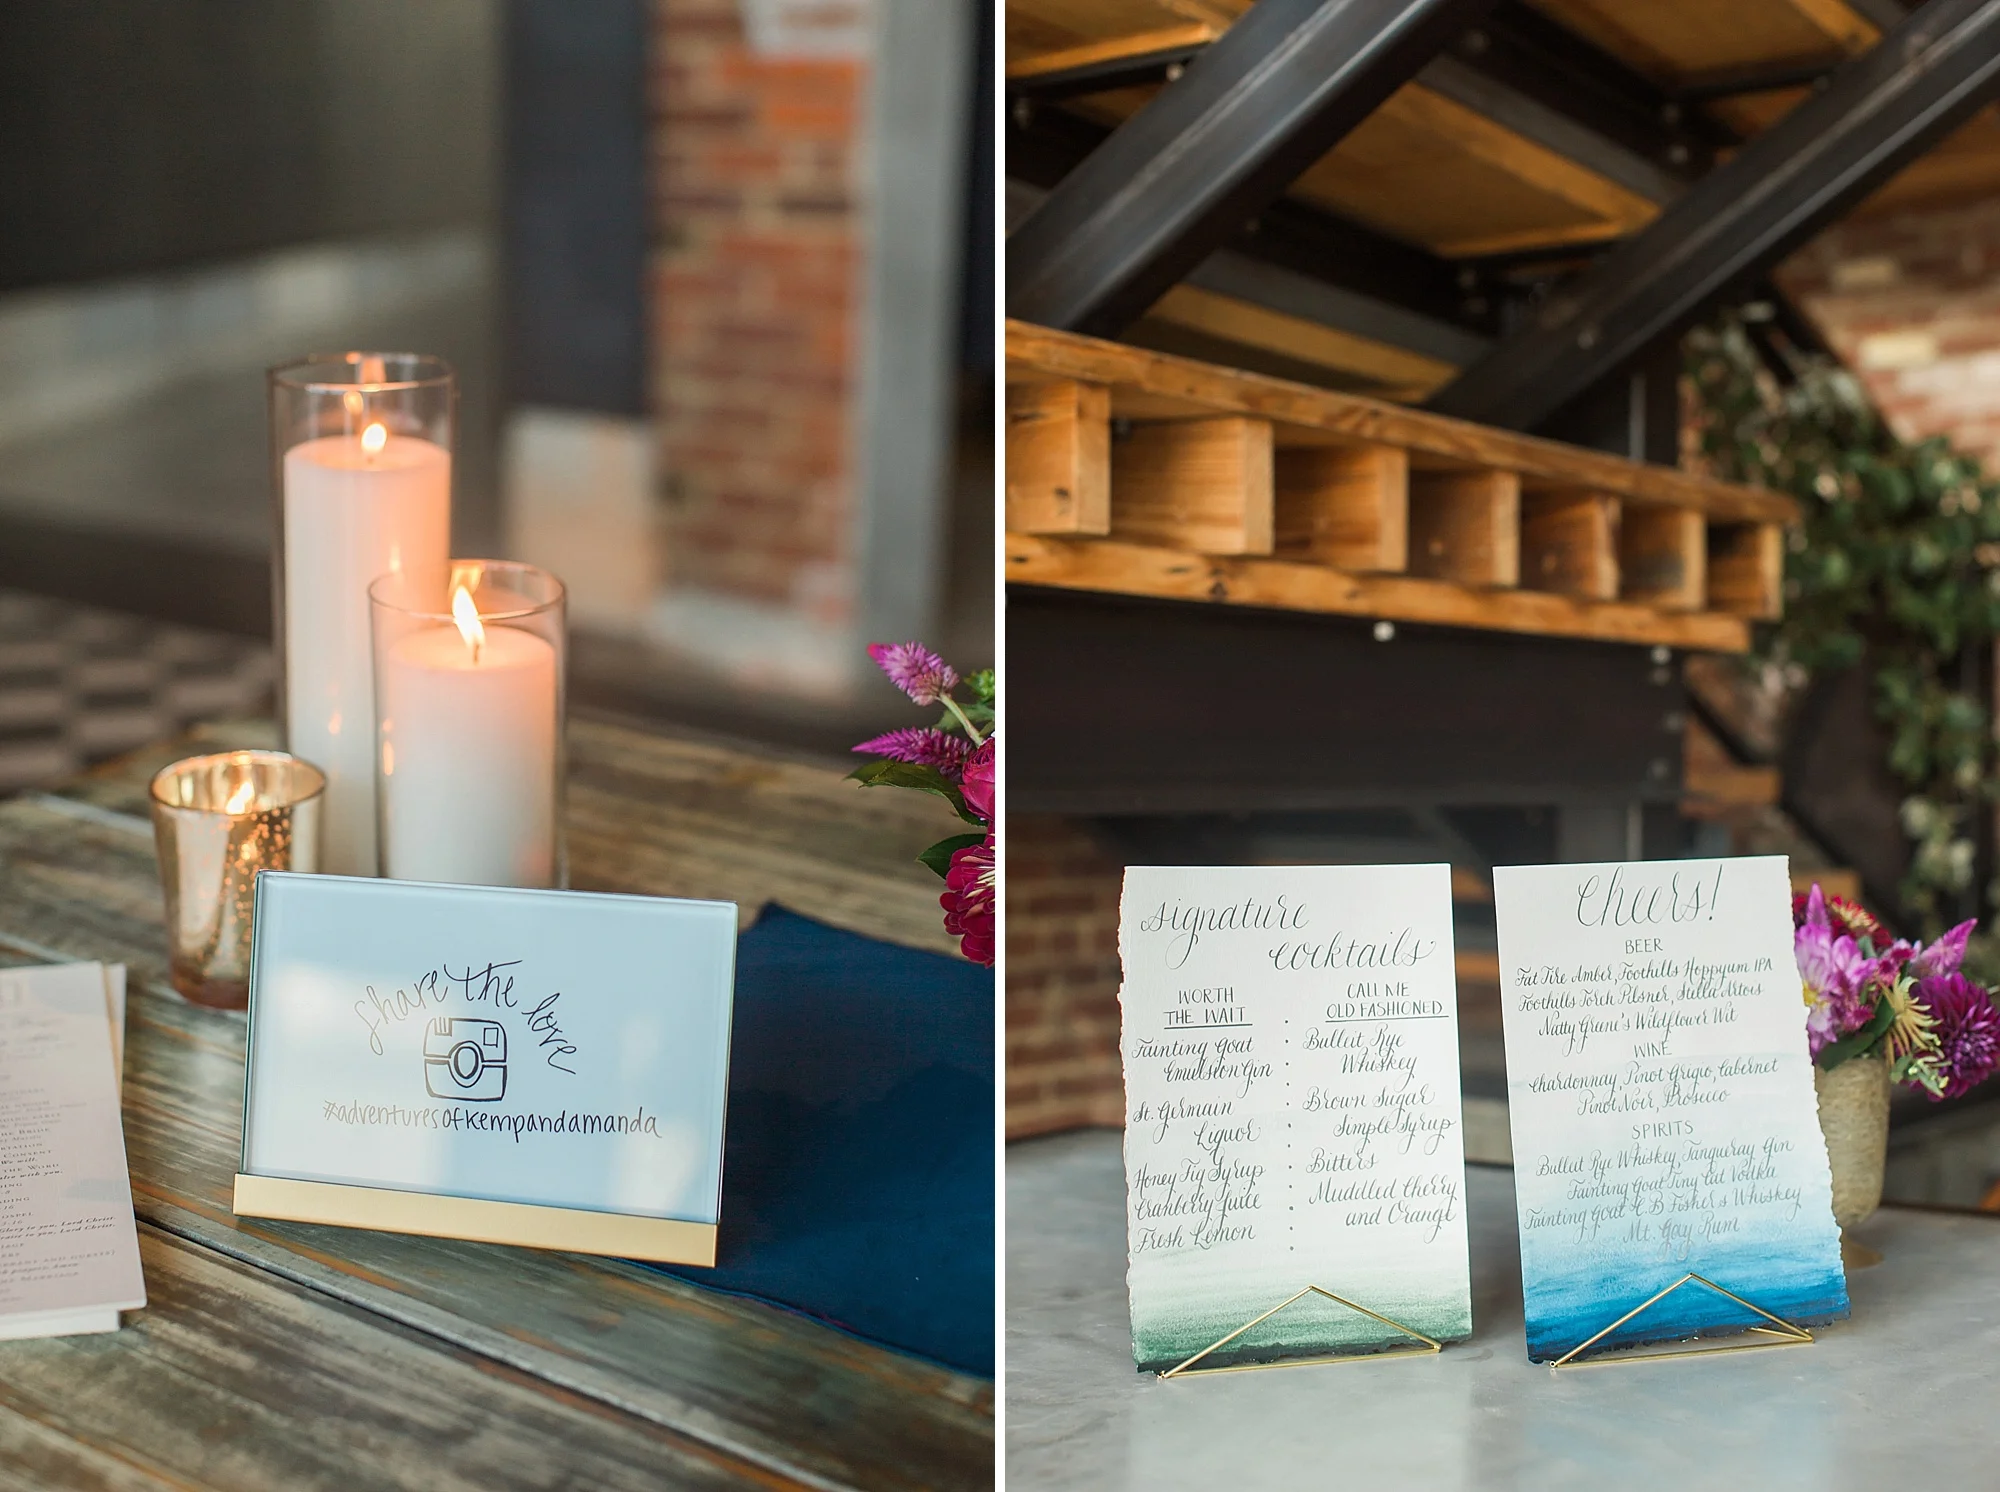 share the love
#adventuresofkempandamanda
signature
cocktails
WORTH
THE WAIT
Fainting Goat
Emulsion Gin
St. Germain
Liquor
Honey Fig Syrup
Cranberry Juice
Fresh Lemon
CALL ME
OLD FASHIONED
Bulleit Rye
Whiskey
Brown Sugar
Simple Syrup
Bitters
Muddled Cherry
and Orange
Cheers!
BEER
Fat Tire Amber, Foothills Hoppyum IPA
Foothills Torch Pilsner, Stella Artois
Natty Greene's Wildflower Wit
WINE
Chardonnay, Pinot Grigio, Cabernet
Pinot Noir, Prosecco
SPIRITS
Bulleit Rye Whiskey, Tanqueray Gin
Fainting Goat Tiny Cat Vodka
Fainting Goat H.B Fisher's Whiskey
Mt. Gay Rum